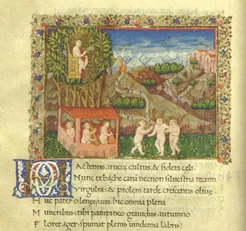 HActenus aruorum cultus, & sidera celi.
Nunc te bache canã necnon siluestria tecum
Virgulta: & prolem tarde crescentis oliue
Huc pater o lenee, tuis hic omnia plena
Muneribus tibi pampineo grauidus autumno
Floret ager, spumat plenis uindemia labris